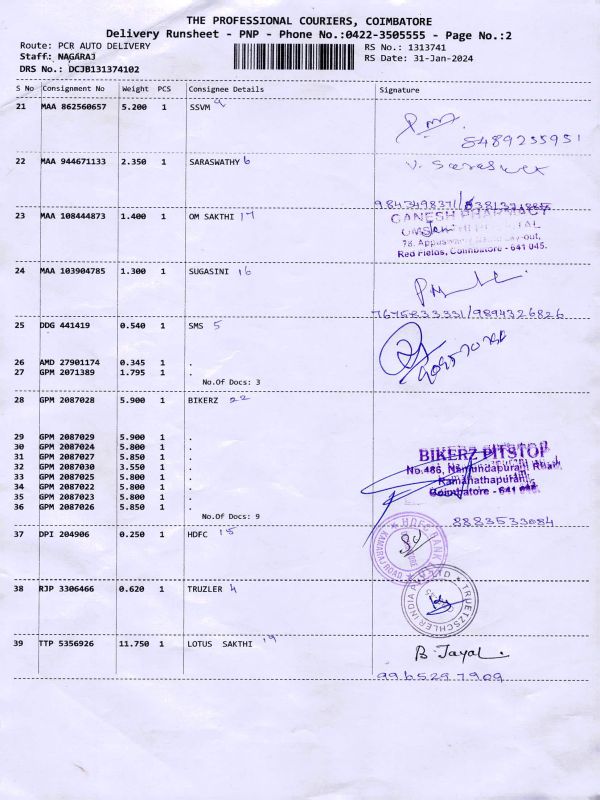 THE PROFESSIONAL COURIERS, COIMBATORE
Delivery Runsheet - PNP - Phone No.:0422-3505555 - Page No.:2
Route: PCR AUTO DELIVERY RS No.: 1313741
Staff: NAGARAJ RS Date: 31-Jan-2024
DRS No.: DCJB131374102
S No Consignment No Weight PCS Consignee Details Signature
21 MAA 862560657 5.200 1 SSVM 9
8489235951
22 MAA 944671133 2.350 1 SARASWATHY 6
V. Saraswathy
23 MAA 108444873 1.400 1 OM SAKTHI 17
GANESH PHARMACY
78, Appuswamy Naidu Lay-out,
Red Fields, Coimbatore - 641 045.
24 MAA 103904785 1.300 1 SUGASINI 16
7675833331/9894326826
25 DDG 441419 0.540 1 SMS 5
26 AMD 27901174 0.345 1 .
27 GPM 2071389 1.795 1 .
No.Of Docs: 3
28 GPM 2087028 5.900 1 BIKERZ 22
29 GPM 2087029 5.900 1 .
30 GPM 2087024 5.800 1 .
31 GPM 2087027 5.850 1 .
32 GPM 2087030 3.550 1 .
33 GPM 2087025 5.800 1 .
34 GPM 2087022 5.800 1 .
35 GPM 2087023 5.800 1 .
36 GPM 2087026 5.850 1 .
No.Of Docs: 9
BIKERZ PITSTOP
No.486, Nanjundapuram Road,
Ramanathapuram,
Coimbatore - 641 045
8883533084
37 DPI 204906 0.250 1 HDFC 15
HDFC BANK
KAMARAJ ROAD
38 RJP 3306466 0.620 1 TRUZLER 4
TRUETZSCHLER INDIA P LTD
39 TTP 5356926 11.750 1 LOTUS SAKTHI 19
B. Jayal.
9965297909